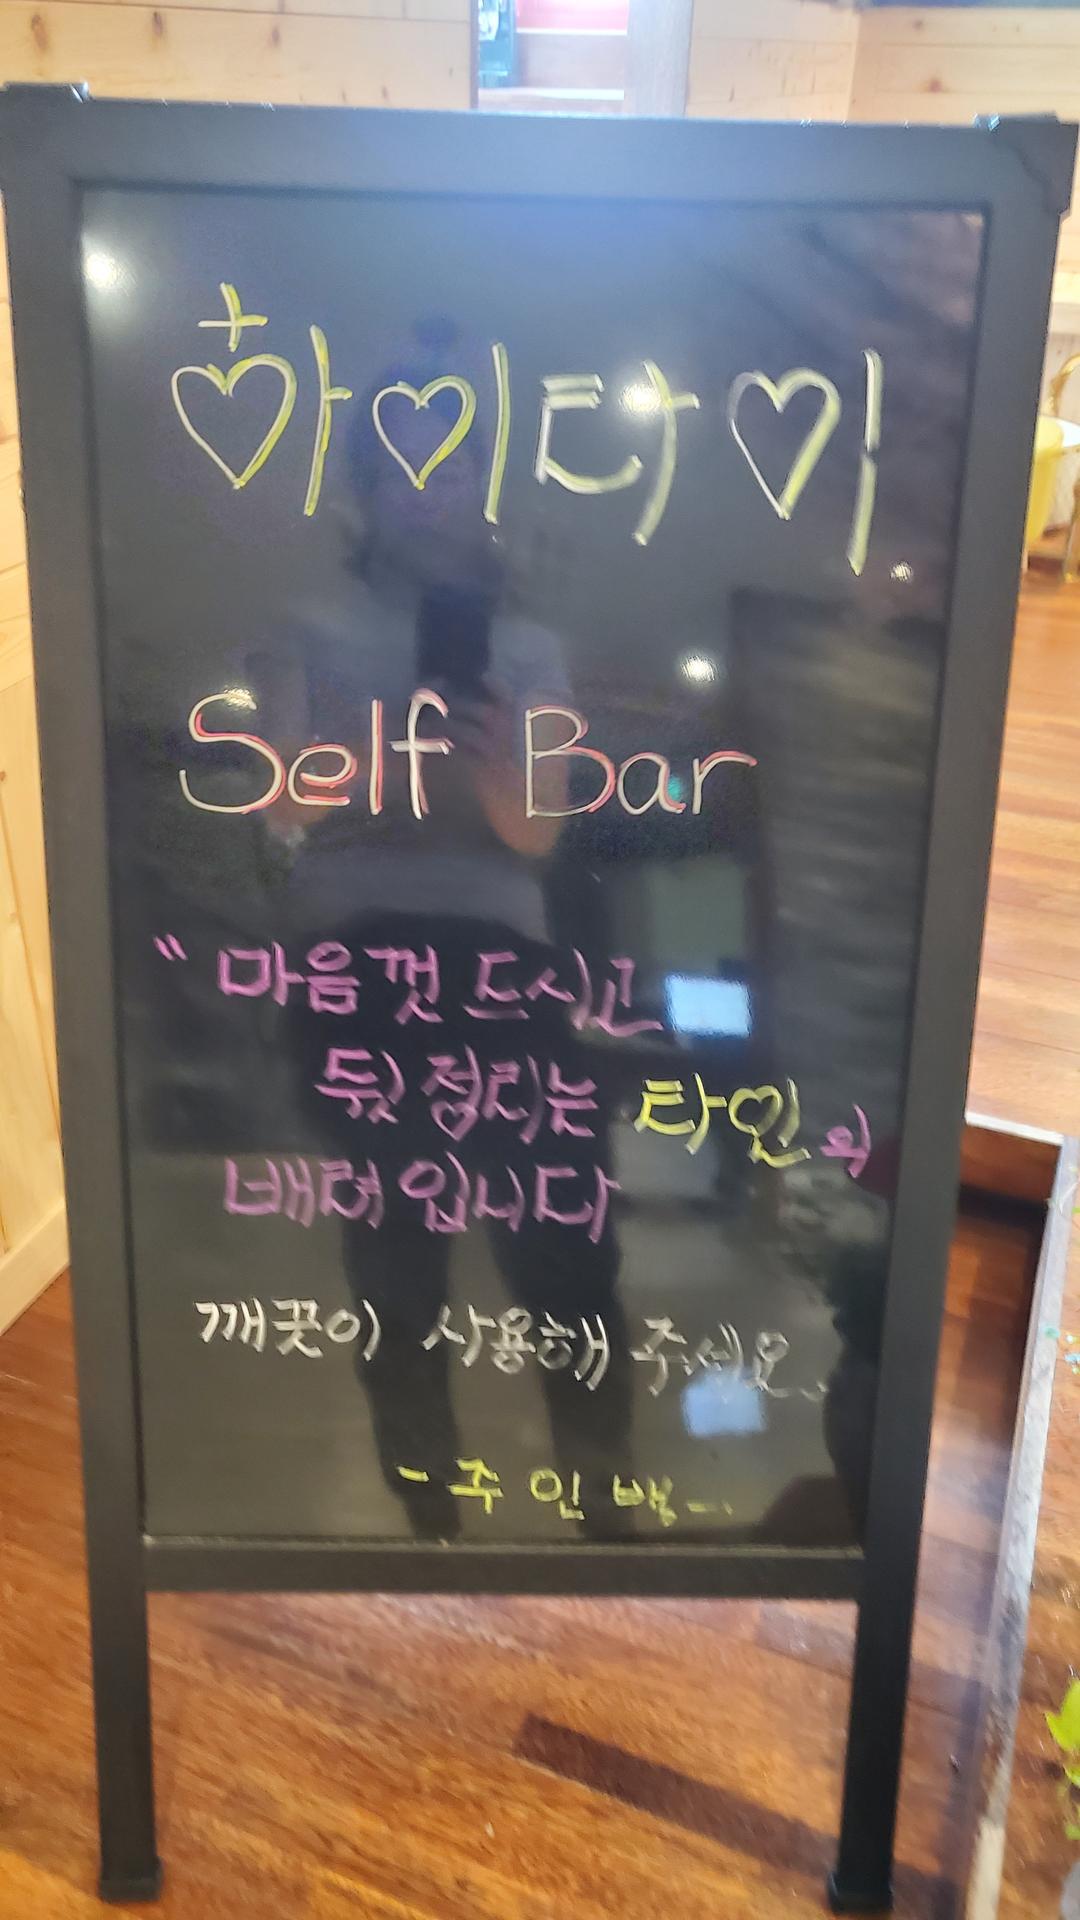 하이타이.
Self Bar
"마음껏 드시고
뒷정리는 타인의
배려입니다
깨끗이 사용해 주세요.
- 주인백 -